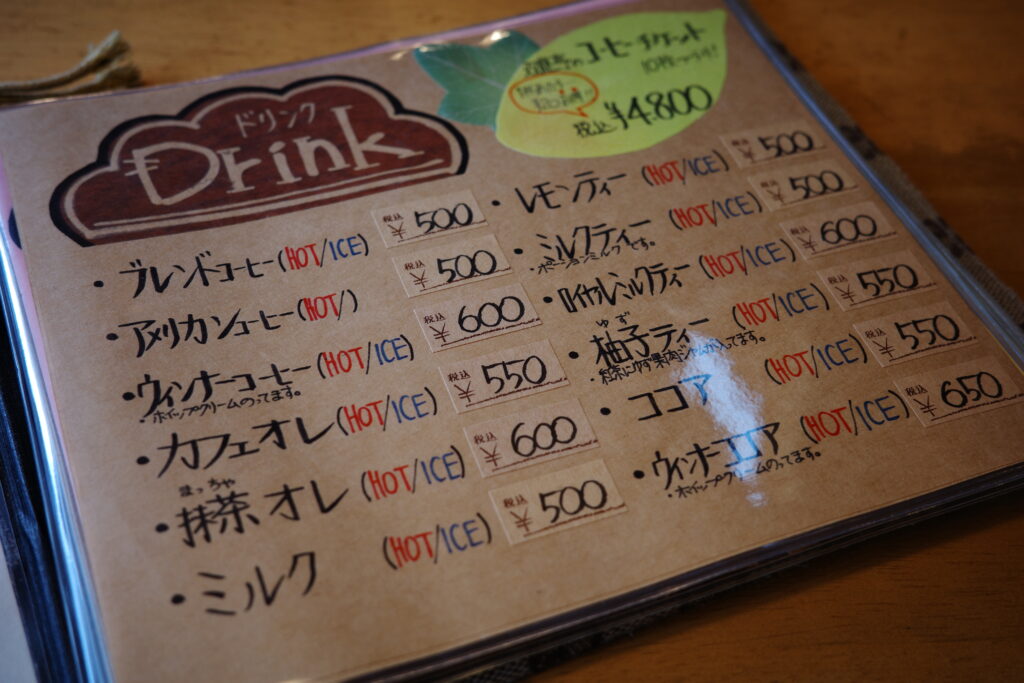 ドリンク
Drink
コーヒーチケット
10枚つづり!
税込 ¥4.800
・ブレンドコーヒー(HOT/ICE) 税込 ¥ 500
・アメリカンコーヒー(HOT/) 税込 ¥ 500
・ウィンナーコーヒー(HOT/ICE) 税込 ¥ 600
・ホイップクリームのってます。
・カフェオレ(HOT/ICE) 税込 ¥ 550
まっちゃ
・抹茶オレ(HOT/ICE) 税込 ¥ 600
・ミルク(HOT/ICE) 税込 ¥ 500
・レモンティー(HOT/ICE) 税込 ¥ 500
・ミルクティー(HOT/ICE) 税込 ¥ 500
・ポーションミルクです。
・ロイヤルミルクティー(HOT/ICE) 税込 ¥ 600
ゆず
・柚子ティー(HOT/ICE) 税込 ¥ 550
・紅茶にゆず果肉ジャムが入ってます。
・ココア(HOT/ICE) 税込 ¥ 550
・ウィンナーココア(HOT/ICE) 税込 ¥ 650
・ホイップクリームのってます。